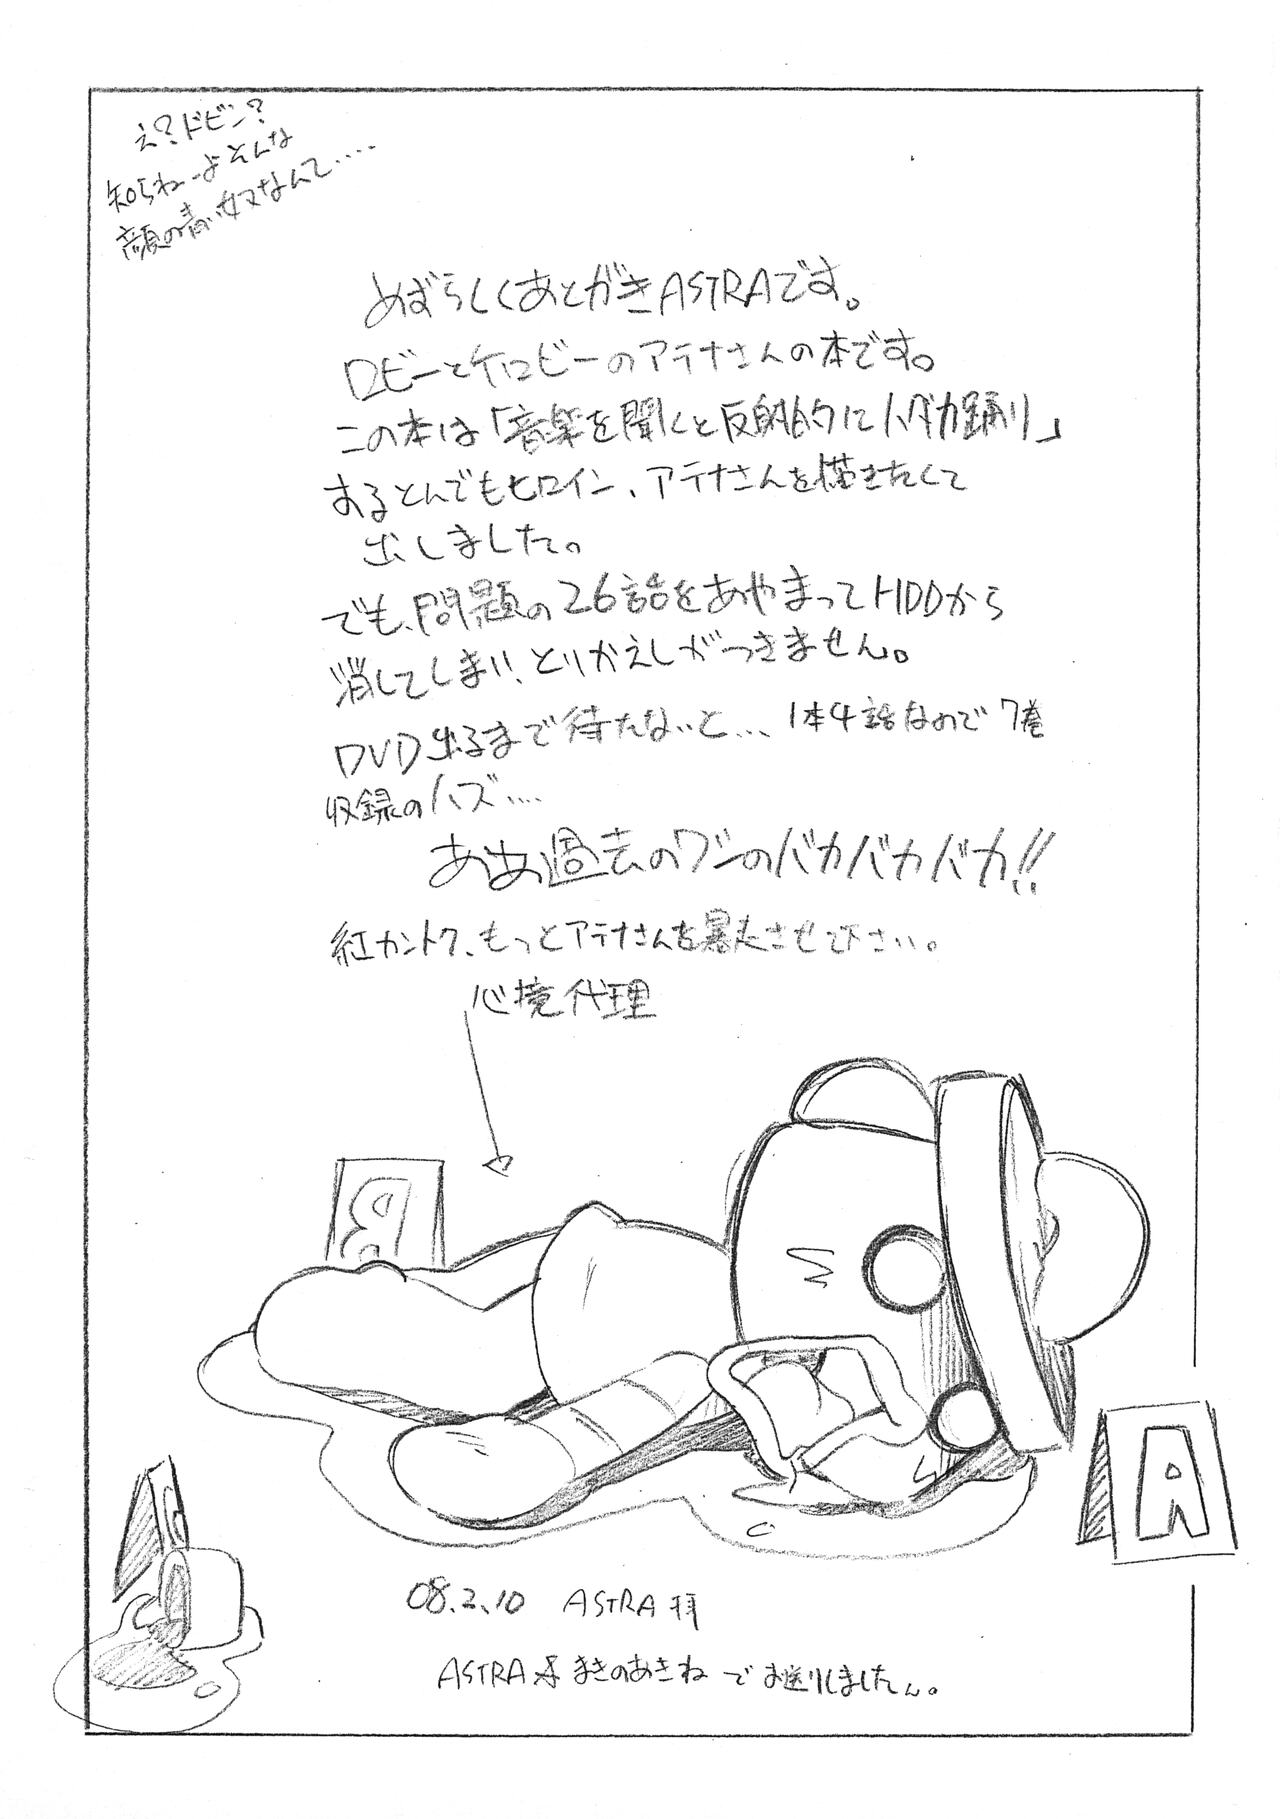 え?ドビン?
知らねーよそんな
顔の青い奴なんて....
めずらしくあとがきASTRAです。
ロビーとケロビーのアテナさんの本です。
この本は「音楽を聞くと反射的にハダカ踊り」
するとんでもヒロイン、アテナさんを描きたくて
出しました。
でも、問題の26話をあやまってHDDから
消してしまい、とりかえしがつきません。
DVD出るまで待たないと... 1本4話なので7巻
収録のハズ....
ああ過去のワシのバカバカバカ!!
紅カントク、もっとアテナさんを暴走させて下さい。
心境代理
B
A
08.2.10 ASTRA拝
ASTRA&まきのあきねでお送りしました。